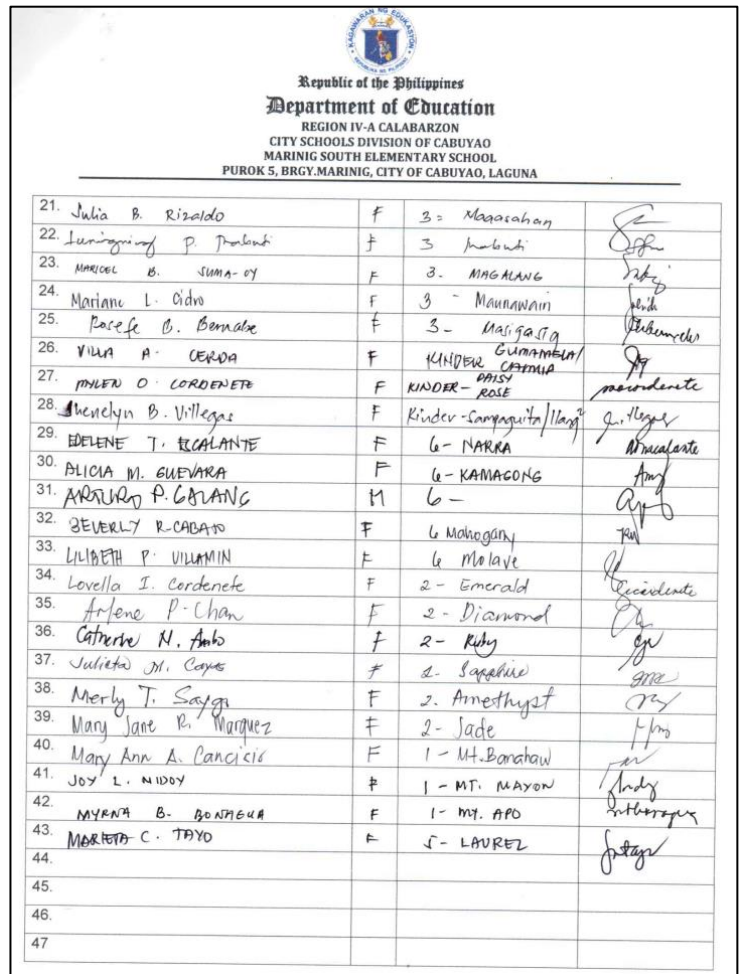 KAGAWARAN NG EDUKASYON
REPUBLIKA NG PILIPINAS
Republic of the Philippines
Department of Education
REGION IV-A CALABARZON
CITY SCHOOLS DIVISION OF CABUYAO
MARINIG SOUTH ELEMENTARY SCHOOL
PUROK 5, BRGY.MARINIG, CITY OF CABUYAO, LAGUNA
21. Julia B. Rizaldo F 3 = Magasahan
22. P. F 3
23. MARICEL B. SUMA-OY F 3. MAGALANG
24. Mariane L. Cidro F 3 - Maunawain
25. Rosefe B. Bernabe F 3 - Masigasig
26. VILLA A. CERDA F KINDER GUMAMELA/
27. MYLEN O. CORDENETE F KINDER - DAISY ROSE
28. Jhenelyn B. Villegas F Kinder - Sampaguita/Ilang²
29. EDELENE T. ESCALANTE F 6 - NARRA
30. ALICIA M. GUEVARA F 6 - KAMAGONG
31. ARTURO P. GALANG M 6 -
32. BEVERLY R. CABATO F 6 Mahogany
33. LILIBETH P. VILLAMIN F 6 Molave
34. Lovella I. Cordenete F 2 - Emerald
35. Arlene P. Chan F 2 - Diamond
36. Catherine N. F 2 - Ruby
37. Julieta M. F 2. Sapphire
38. Merly T. F 2. Amethyst
39. Mary Jane R. Marquez F 2 - Jade
40. Mary Ann A. Cancicio F 1 - Mt. Banahaw
41. JOY L. NIDOY F 1 - MT. MAYON
42. MYRNA B. BONAGUA F 1 - MT. APO
43. MARIETA C. TAYO F 5 - LAUREL
44.
45.
46.
47